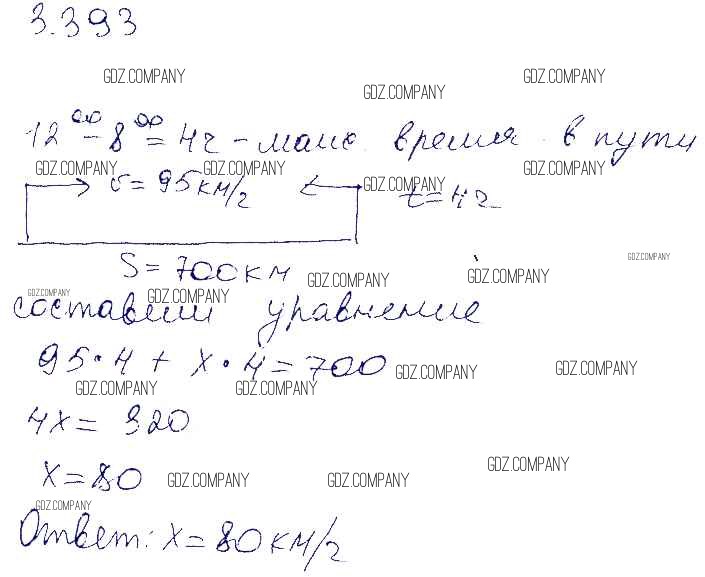 3.393
GDZ.COMPANY GDZ.COMPANY GDZ.COMPANY
12⁰⁰ - 8⁰⁰ = 4ч - время в пути
GDZ.COMPANY GDZ.COMPANY GDZ.COMPANY GDZ.COMPANY
v = 95км/ч t = 4ч
S = 700км
GDZ.COMPANY GDZ.COMPANY GDZ.COMPANY
GDZ.COMPANY GDZ.COMPANY
составим уравнение
95·4 + x·4 = 700
GDZ.COMPANY GDZ.COMPANY
GDZ.COMPANY GDZ.COMPANY
4x = 320
x = 80
GDZ.COMPANY GDZ.COMPANY GDZ.COMPANY
GDZ.COMPANY
Ответ: x = 80км/ч